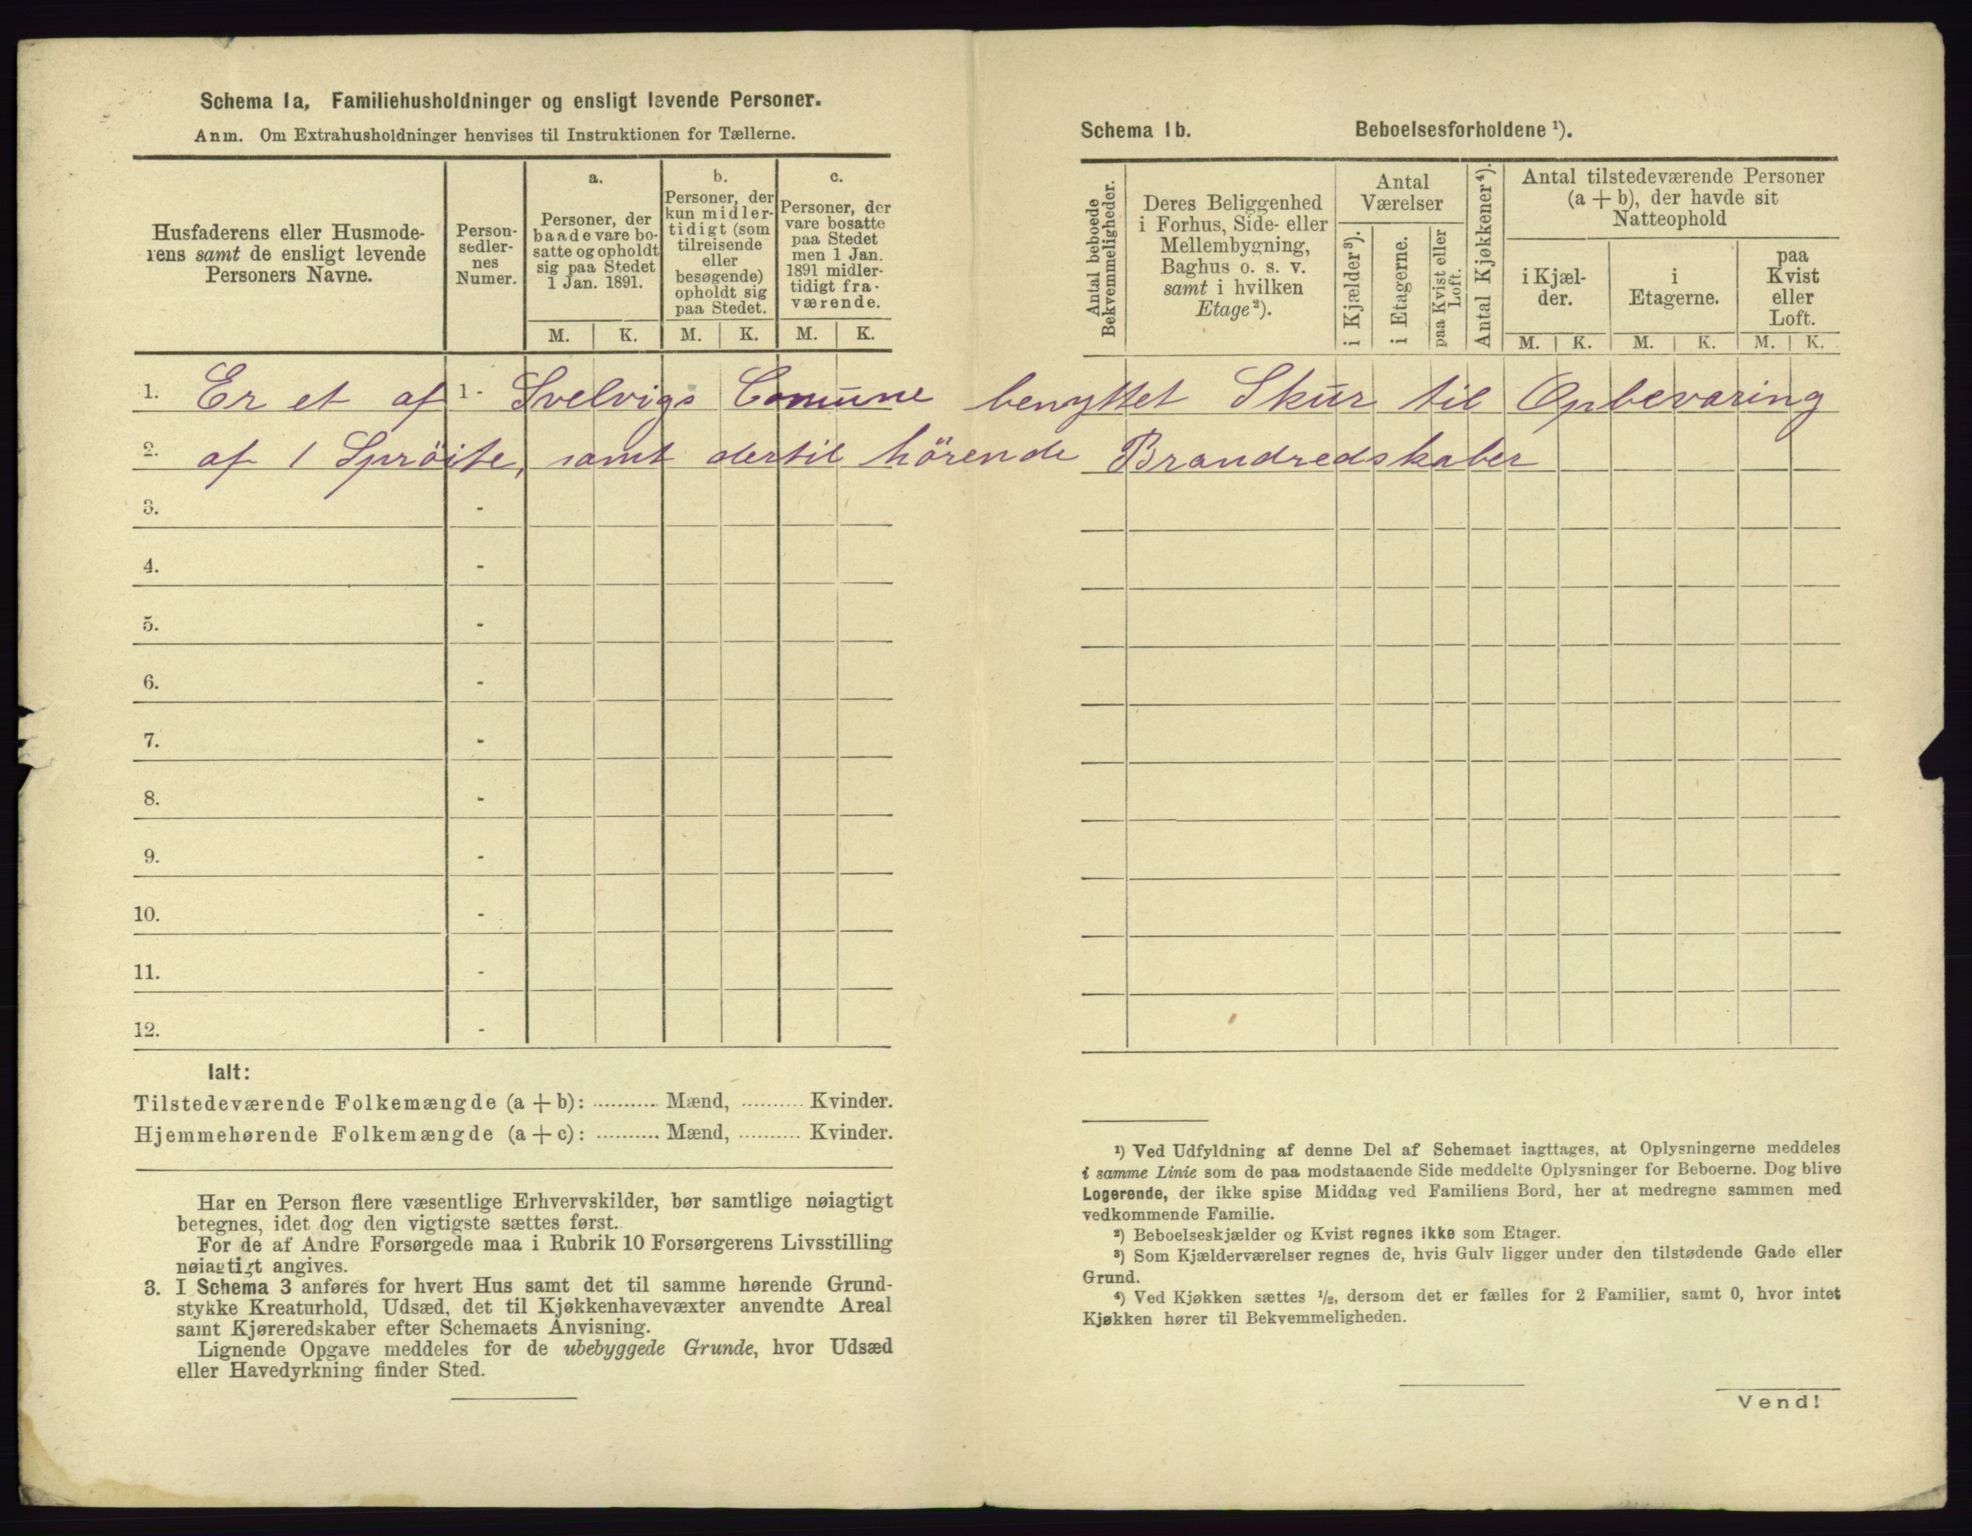 Schema 1a, Familiehusholdninger og ensligt levende Personer.
Anm. Om Extrahusholdninger henvises til Instruktionen for Tællerne.
Husfaderens eller Husmode-
rens samt de ensligt levende
Personers Navne.
Person-
sedler-
nes
Numer.
a.
Personer, der
baade vare bo-
satte og opholdt
sig paa Stedet
1 Jan. 1891.
b.
Personer, der
kun midler-
tidigt (som
tilreisende
eller
besøgende)
opholdt sig
paa Stedet.
c.
Personer, der
vare bosatte
paa Stedet
men 1 Jan.
1891 midler-
tidigt fra-
værende.
M. K. M. K. M. K.
1. Er et af 1 - Svelvigs Comune benyttet Skur til Opbevaring
2. af 1 Spröite, samt dertil hörende Brandredskaber
3. -
4. -
5. -
6. -
7. -
8. -
9. -
10. -
11. -
12. -
Ialt:
Tilstedeværende Folkemængde (a + b): .......... Mænd, .......... Kvinder.
Hjemmehørende Folkemængde (a + c): .......... Mænd, .......... Kvinder.
Har en Person flere væsentlige Erhvervskilder, bør samtlige nøiagtigt
betegnes, idet dog den vigtigste sættes først.
For de af Andre Forsørgede maa i Rubrik 10 Forsørgerens Livsstilling
nøiagtigt angives.
3. I Schema 3 anføres for hvert Hus samt det til samme hørende Grund-
stykke Kreaturhold, Udsæd, det til Kjøkkenhavevæxter anvendte Areal
samt Kjøreredskaber efter Schemaets Anvisning.
Lignende Opgave meddeles for de ubebyggede Grunde, hvor Udsæd
eller Havedyrkning finder Sted.
Schema 1b. Beboelsesforholdene ¹).
Antal beboede
Bekvemmeligheder.
Deres Beliggenhed
i Forhus, Side- eller
Mellembygning,
Baghus o. s. v.
samt i hvilken
Etage²).
Antal
Værelser
i Kjælder³).
i Etagerne.
paa Kvist eller
Loft.
Antal Kjøkkener⁴).
Antal tilstedeværende Personer
(a + b), der havde sit
Natteophold
i Kjæl-
der.
i
Etagerne.
paa
Kvist
eller
Loft.
M. K. M. K. M. K.
¹) Ved Udfyldning af denne Del af Schemaet iagttages, at Oplysningerne meddeles
i samme Linie som de paa modstaaende Side meddelte Oplysninger for Beboerne. Dog blive
Logerende, der ikke spise Middag ved Familiens Bord, her at medregne sammen med
vedkommende Familie.
²) Beboelseskjælder og Kvist regnes ikke som Etager.
³) Som Kjælderværelser regnes de, hvis Gulv ligger under den tilstødende Gade eller
Grund.
⁴) Ved Kjøkken sættes ½, dersom det er fælles for 2 Familier, samt 0, hvor intet
Kjøkken hører til Bekvemmeligheden.
Vend!